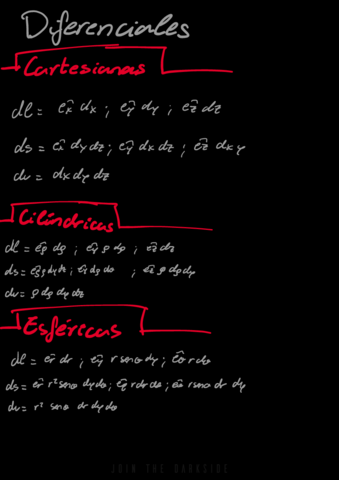 Diferenciales
Cartesianas
dl = êx dx ; êy dy ; êz dz
ds = êx dydz ; êy dx dz ; êz dxy
dv = dx dy dz
Cilíndricas
dl = êρ dρ ; êφ ρ dφ ; êz dz
ds = êρ ρ dφ dz ; êφ dρ dz ; êz ρ dρ dφ
dv = ρ dρ dφ dz
Esféricas
dl = êr dr ; êφ r senθ dφ ; êθ r dθ
ds = êr r² senθ dφ dθ ; êφ r dr dθ ; êθ r senθ dr dφ
dv = r² senθ dr dφ dθ
JOIN THE DARKSIDE